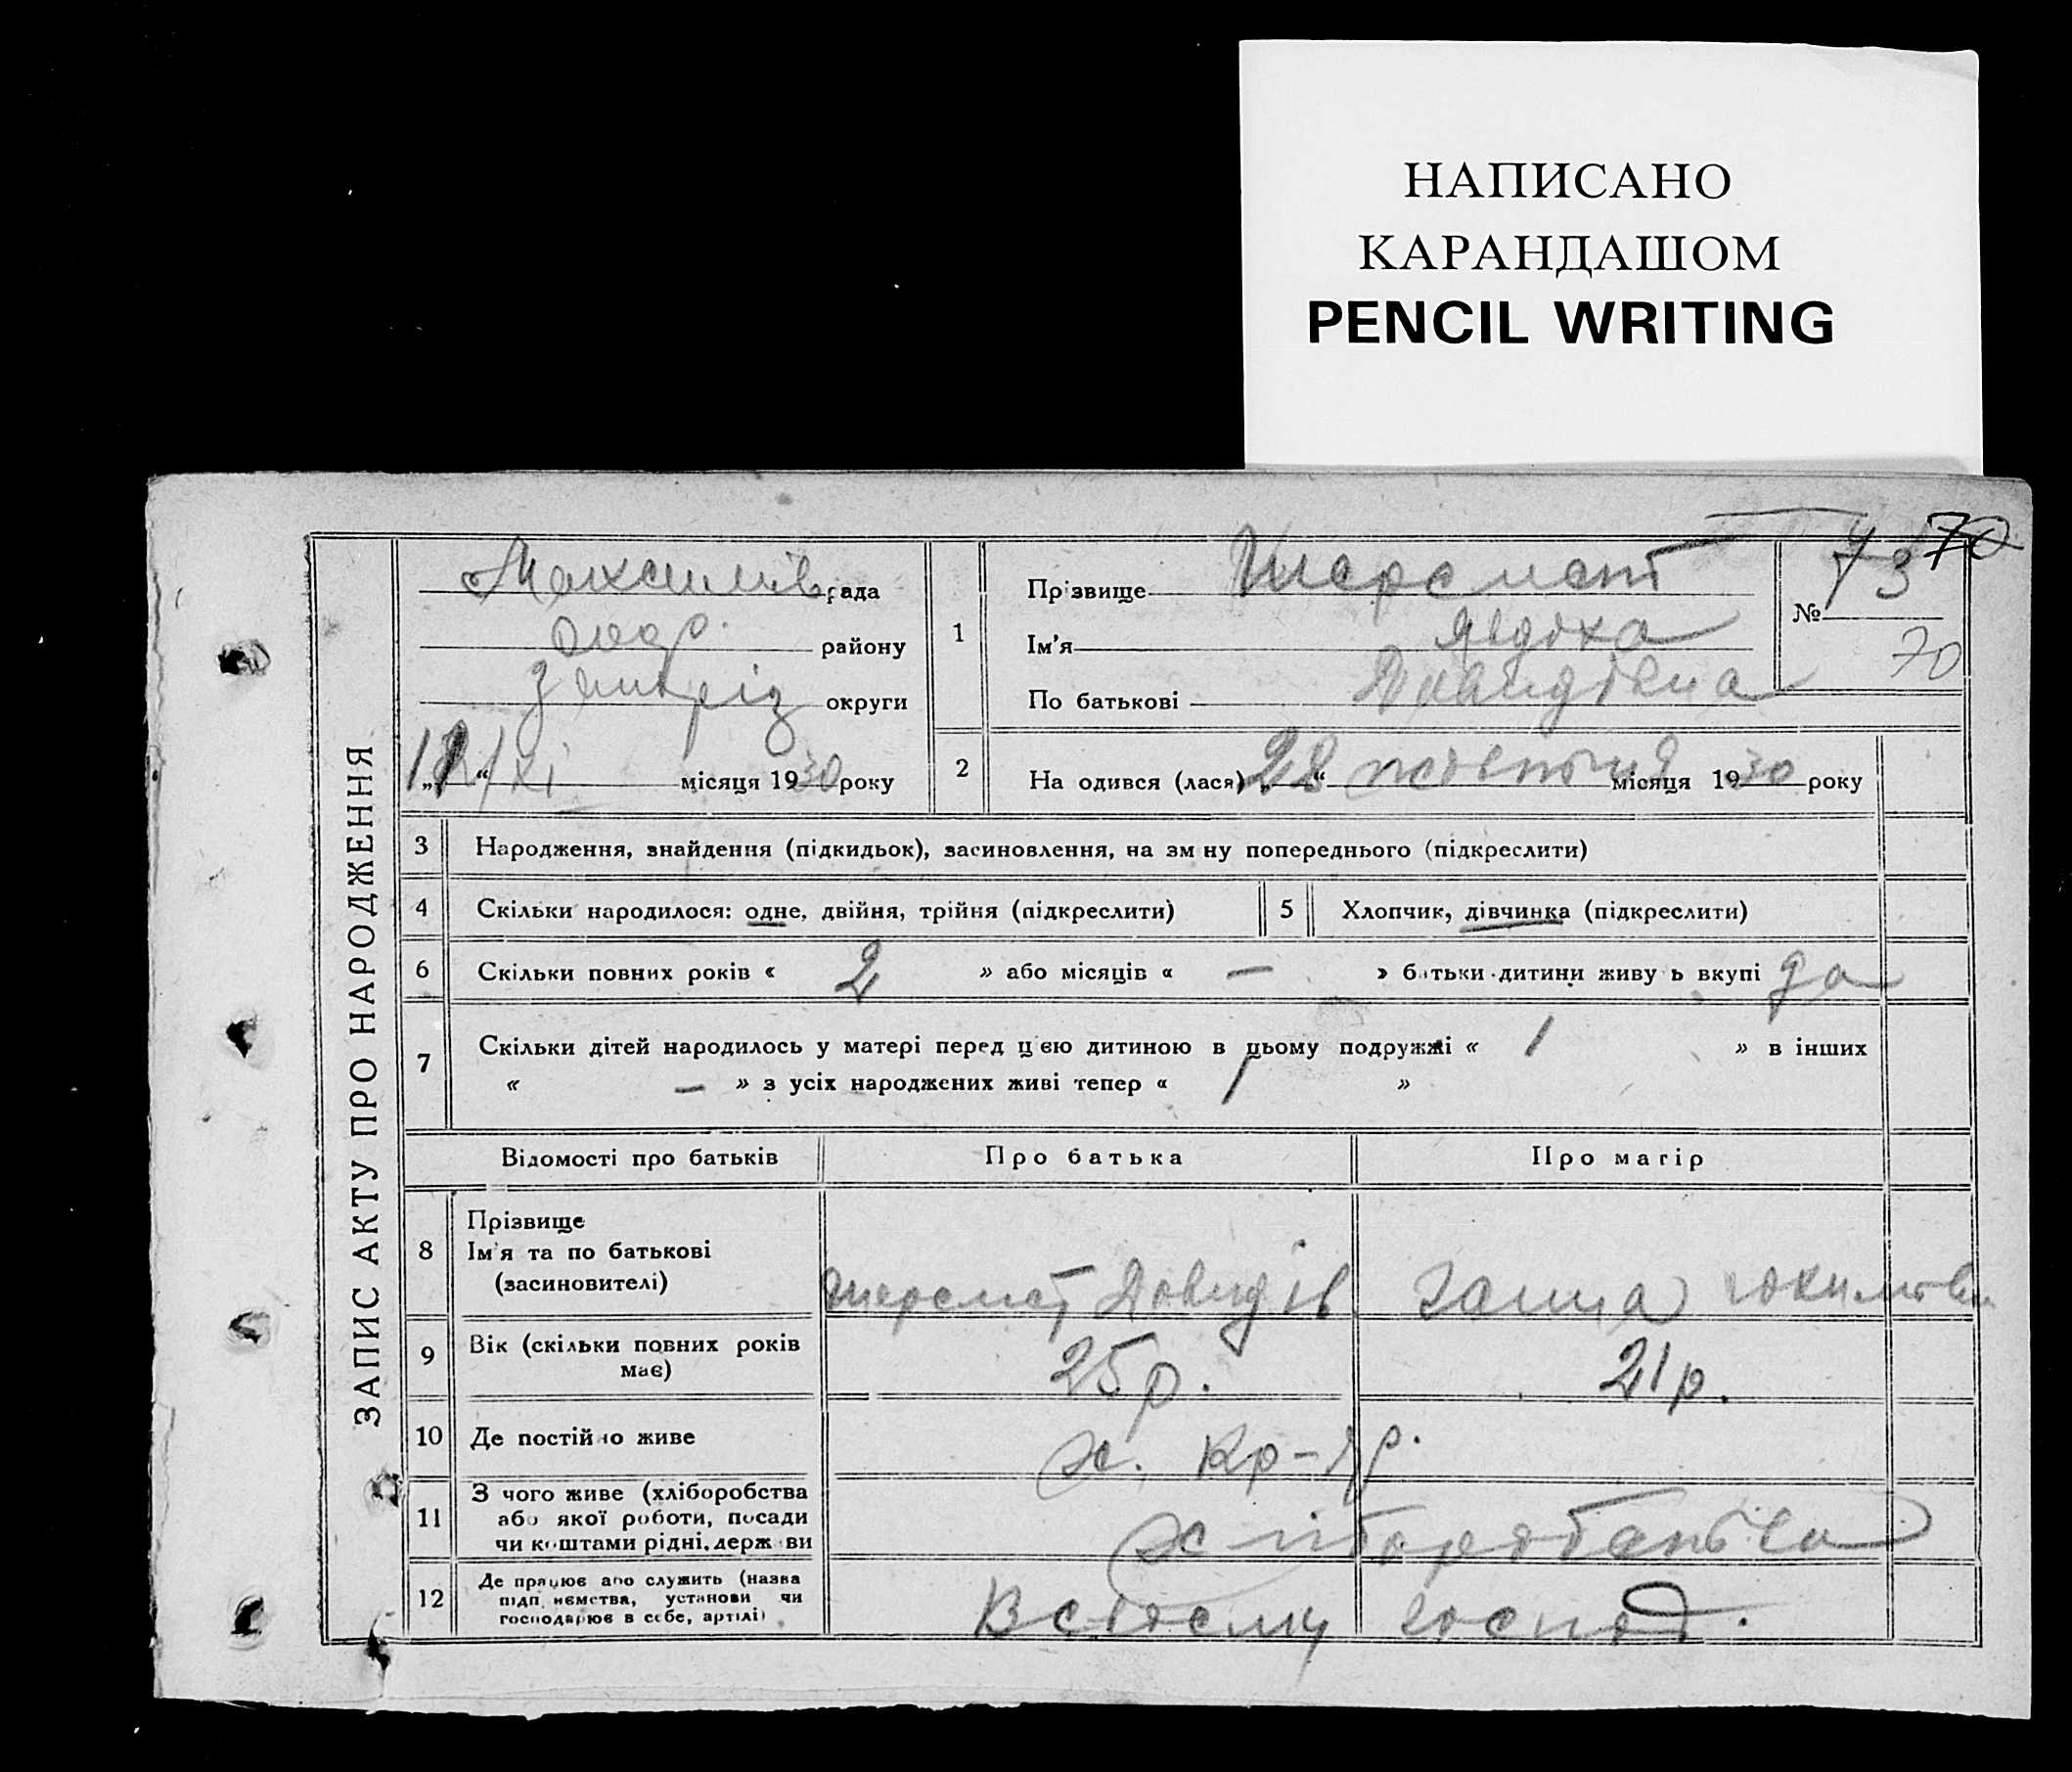 НАПИСАНО
КАРАНДАШОМ
PENCIL WRITING
ЗАПИС АКТУ ПРО НАРОДЖЕННЯ
Максимів рада
району
округи
12/XI місяця 1930 року
1
Прізвище Шеремет
Ім'я Явдоха
По батькові Давидівна
№ 73 70
70
2 На одився (лася) „28“ жовтня місяця 1930 року
3 Народження, знайдення (підкидьок), засиновлення, на зм ну попереднього (підкреслити)
4 Скільки народилося: одне, двійня, трійня (підкреслити) 5 Хлопчик, дівчинка (підкреслити)
6 Скільки повних років « 2 » або місяців « — » батьки дитини живу ь вкупі да
7 Скільки дітей народилось у матері перед цією дитиною в цьому подружжі « 1 » в інших
« — » з усіх народжених живі тепер « 1 »
Відомості про батьків Про батька Про матір
8 Прізвище
Ім'я та по батькові
(засиновителі)
Шеремет Давид Ганна
9 Вік (скільки повних років
має) 25 р. 21 р.
10 Де постійно живе х. Кр-Яр.
11 З чого живе (хліборобства
або якої роботи, посади
чи коштами рідні, держ ви
12 Де працює або служить (назва
підп иємства, установи чи
господарює в себе, артілі)
В своєму господ.